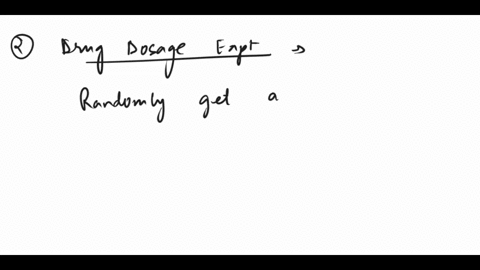 ② Drug Dosage Expt →
Randomly get a